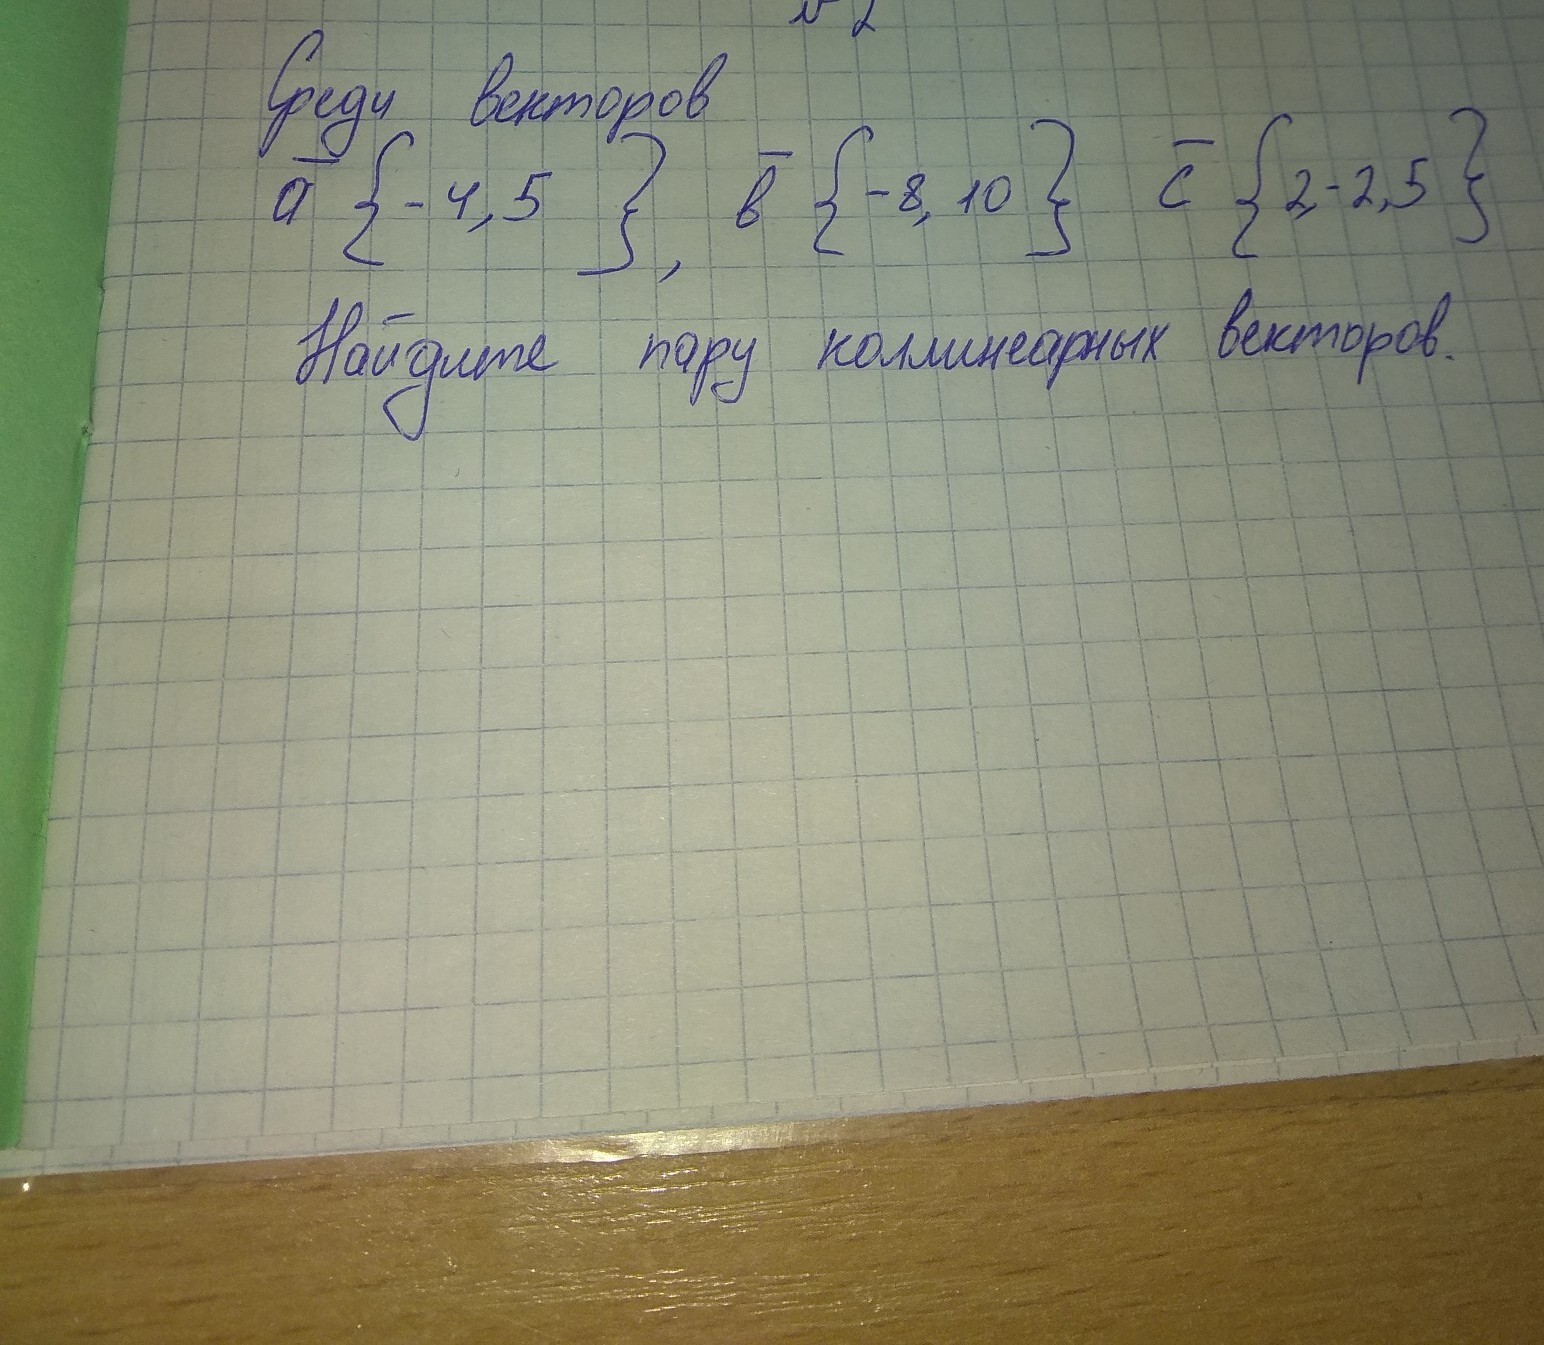 №2
Среди векторов
a̅ {-4, 5 }, в̅ {-8, 10} c̅ {2, -2,5}
Найдите пару коллинеарных векторов.